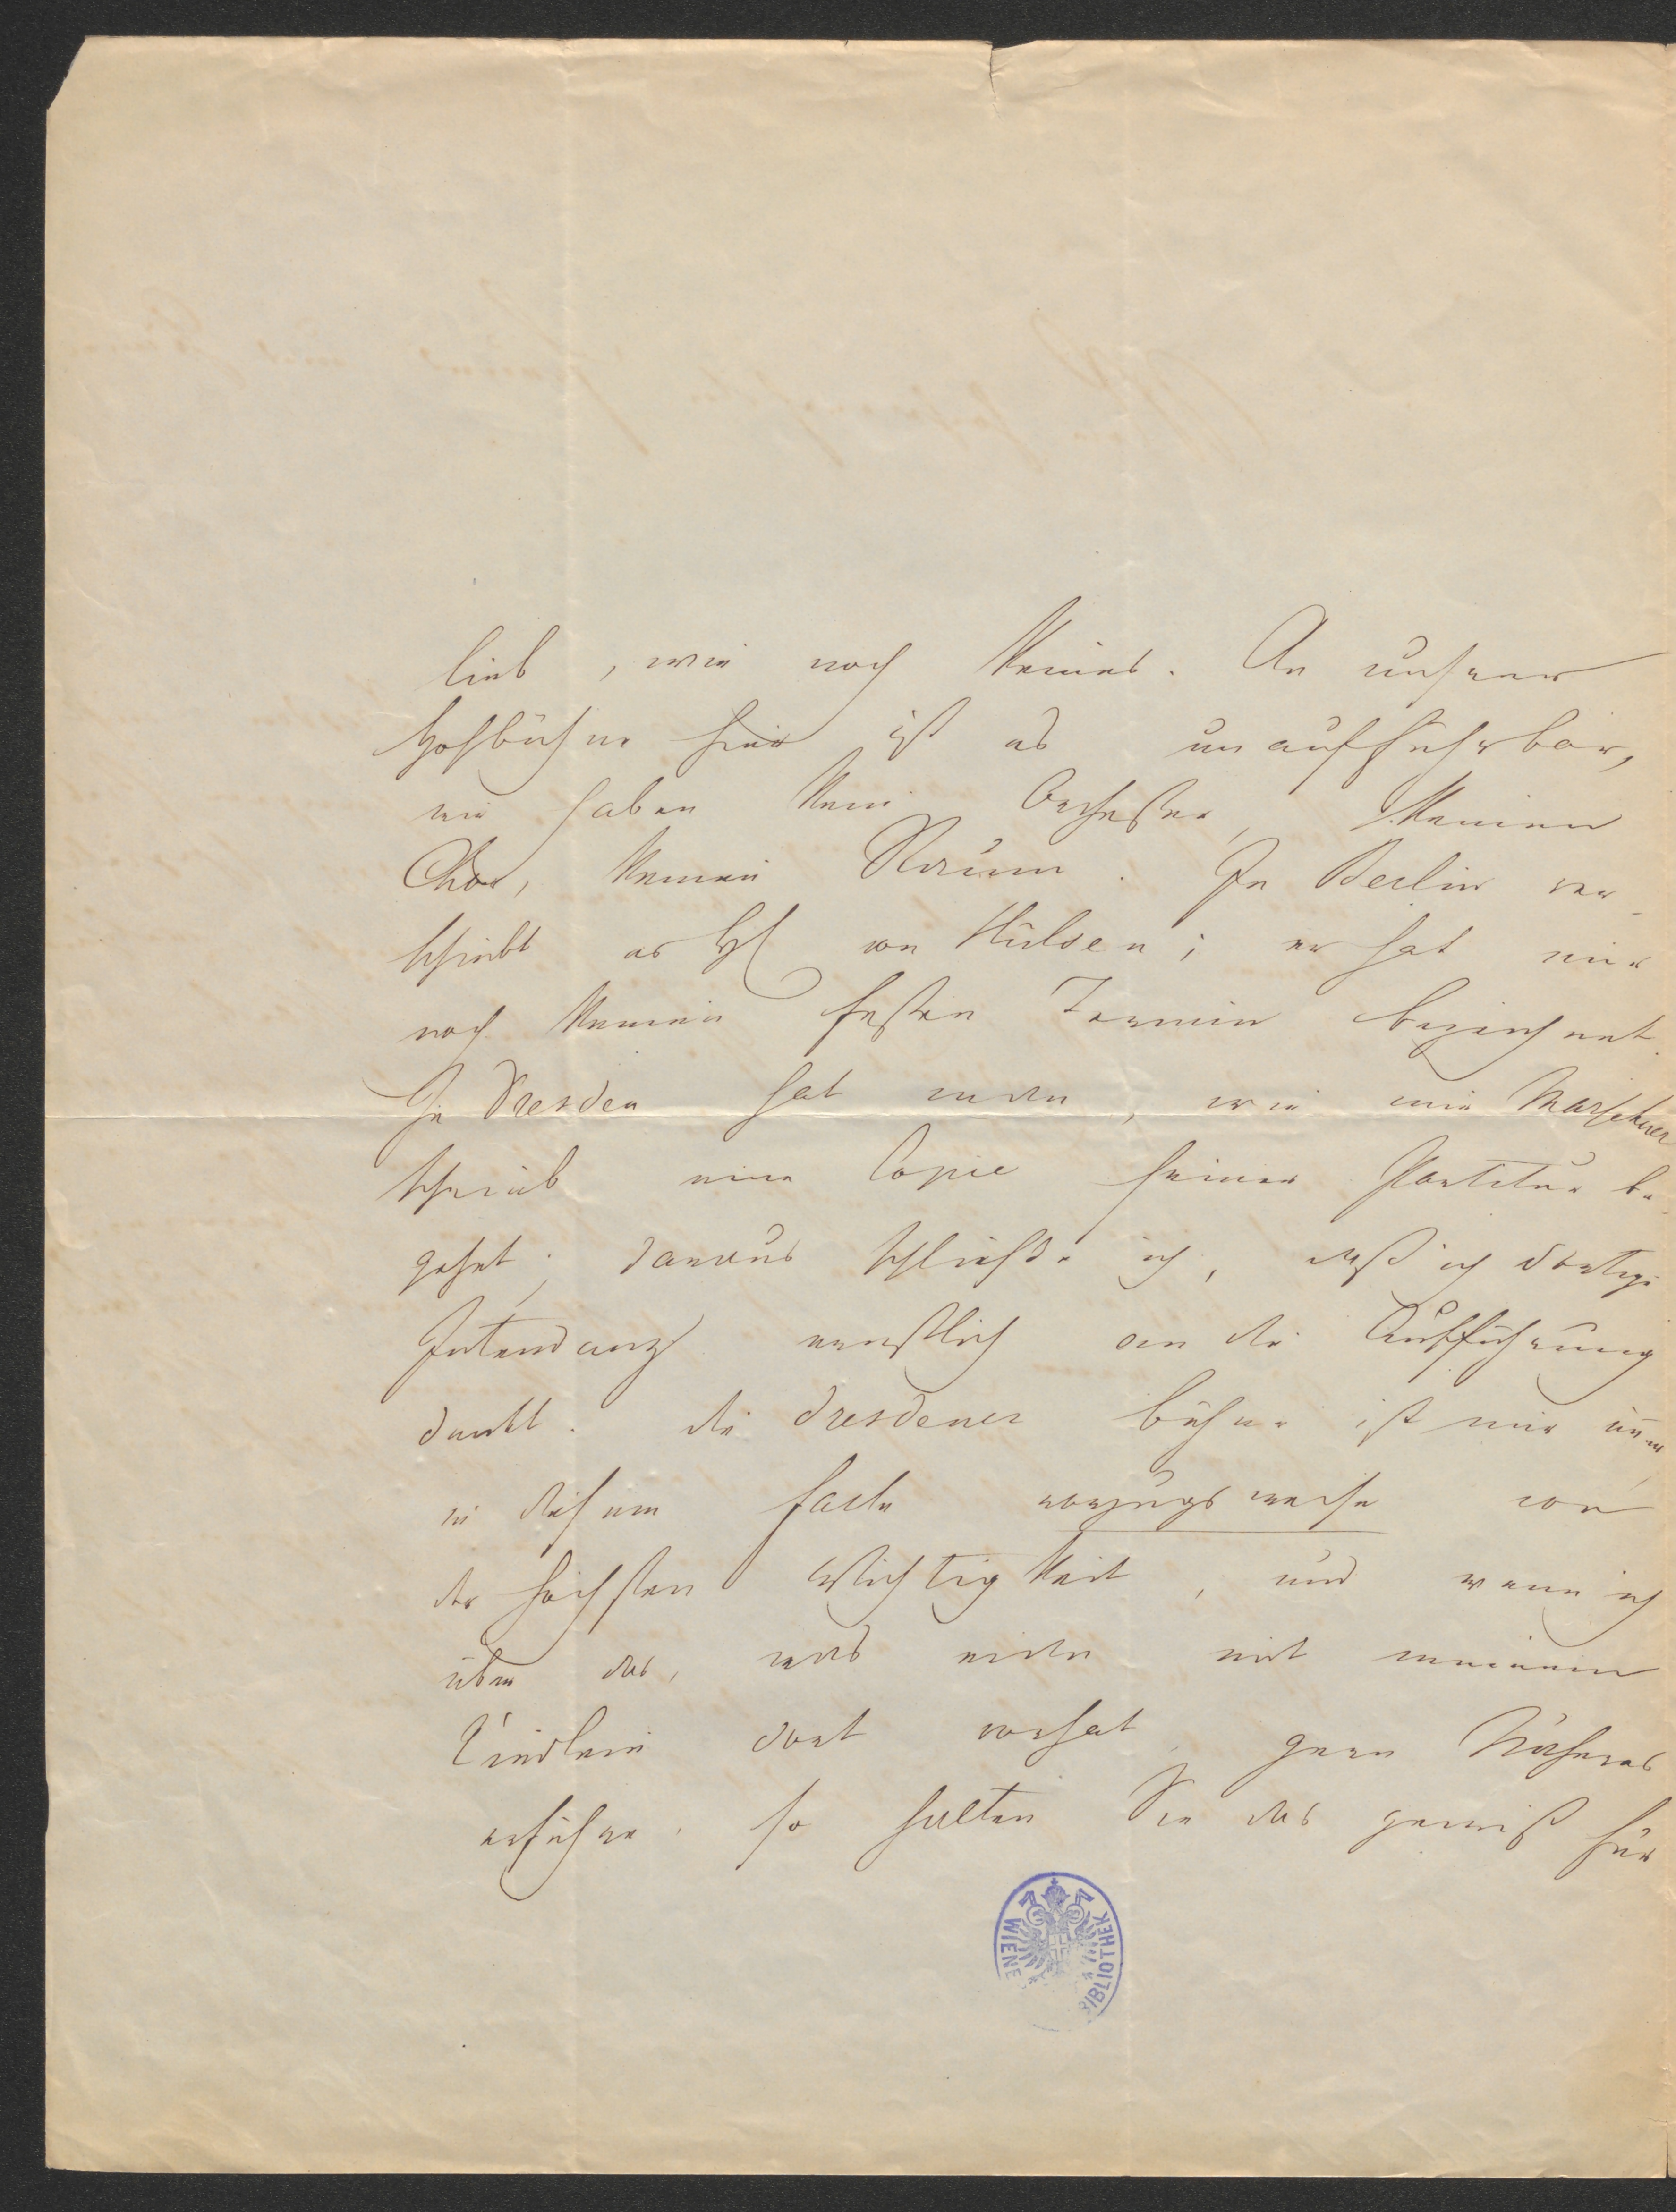 lieb, wie noch keines. An unserer
Hofbühne hier ist es unaufführbar,
wir haben kein Orchester, keinen
Chor, keinen Raum. In Berlin ver-
schiebt es H von Hülsen; er hat mir
noch keinen festen Termin bezeichnet.
In Dresden hat man, wie mir Marschner
schrieb eine Copie seiner Partitur be-
gehrt; daraus schließe ich, daß dortige
Intendanz ernstlich an die Aufführung
denkt. die Dresdener Bühne ist mir immer,
in diesem Falle vorzugsweise von
der höchsten Wichtigkeit, und wenn ich
über das, was man mit meinem
Kindlein dort vorhat, gern Näheres
erführe, so halten Sie das gewiß für
WIENE BIBLIOTHEK